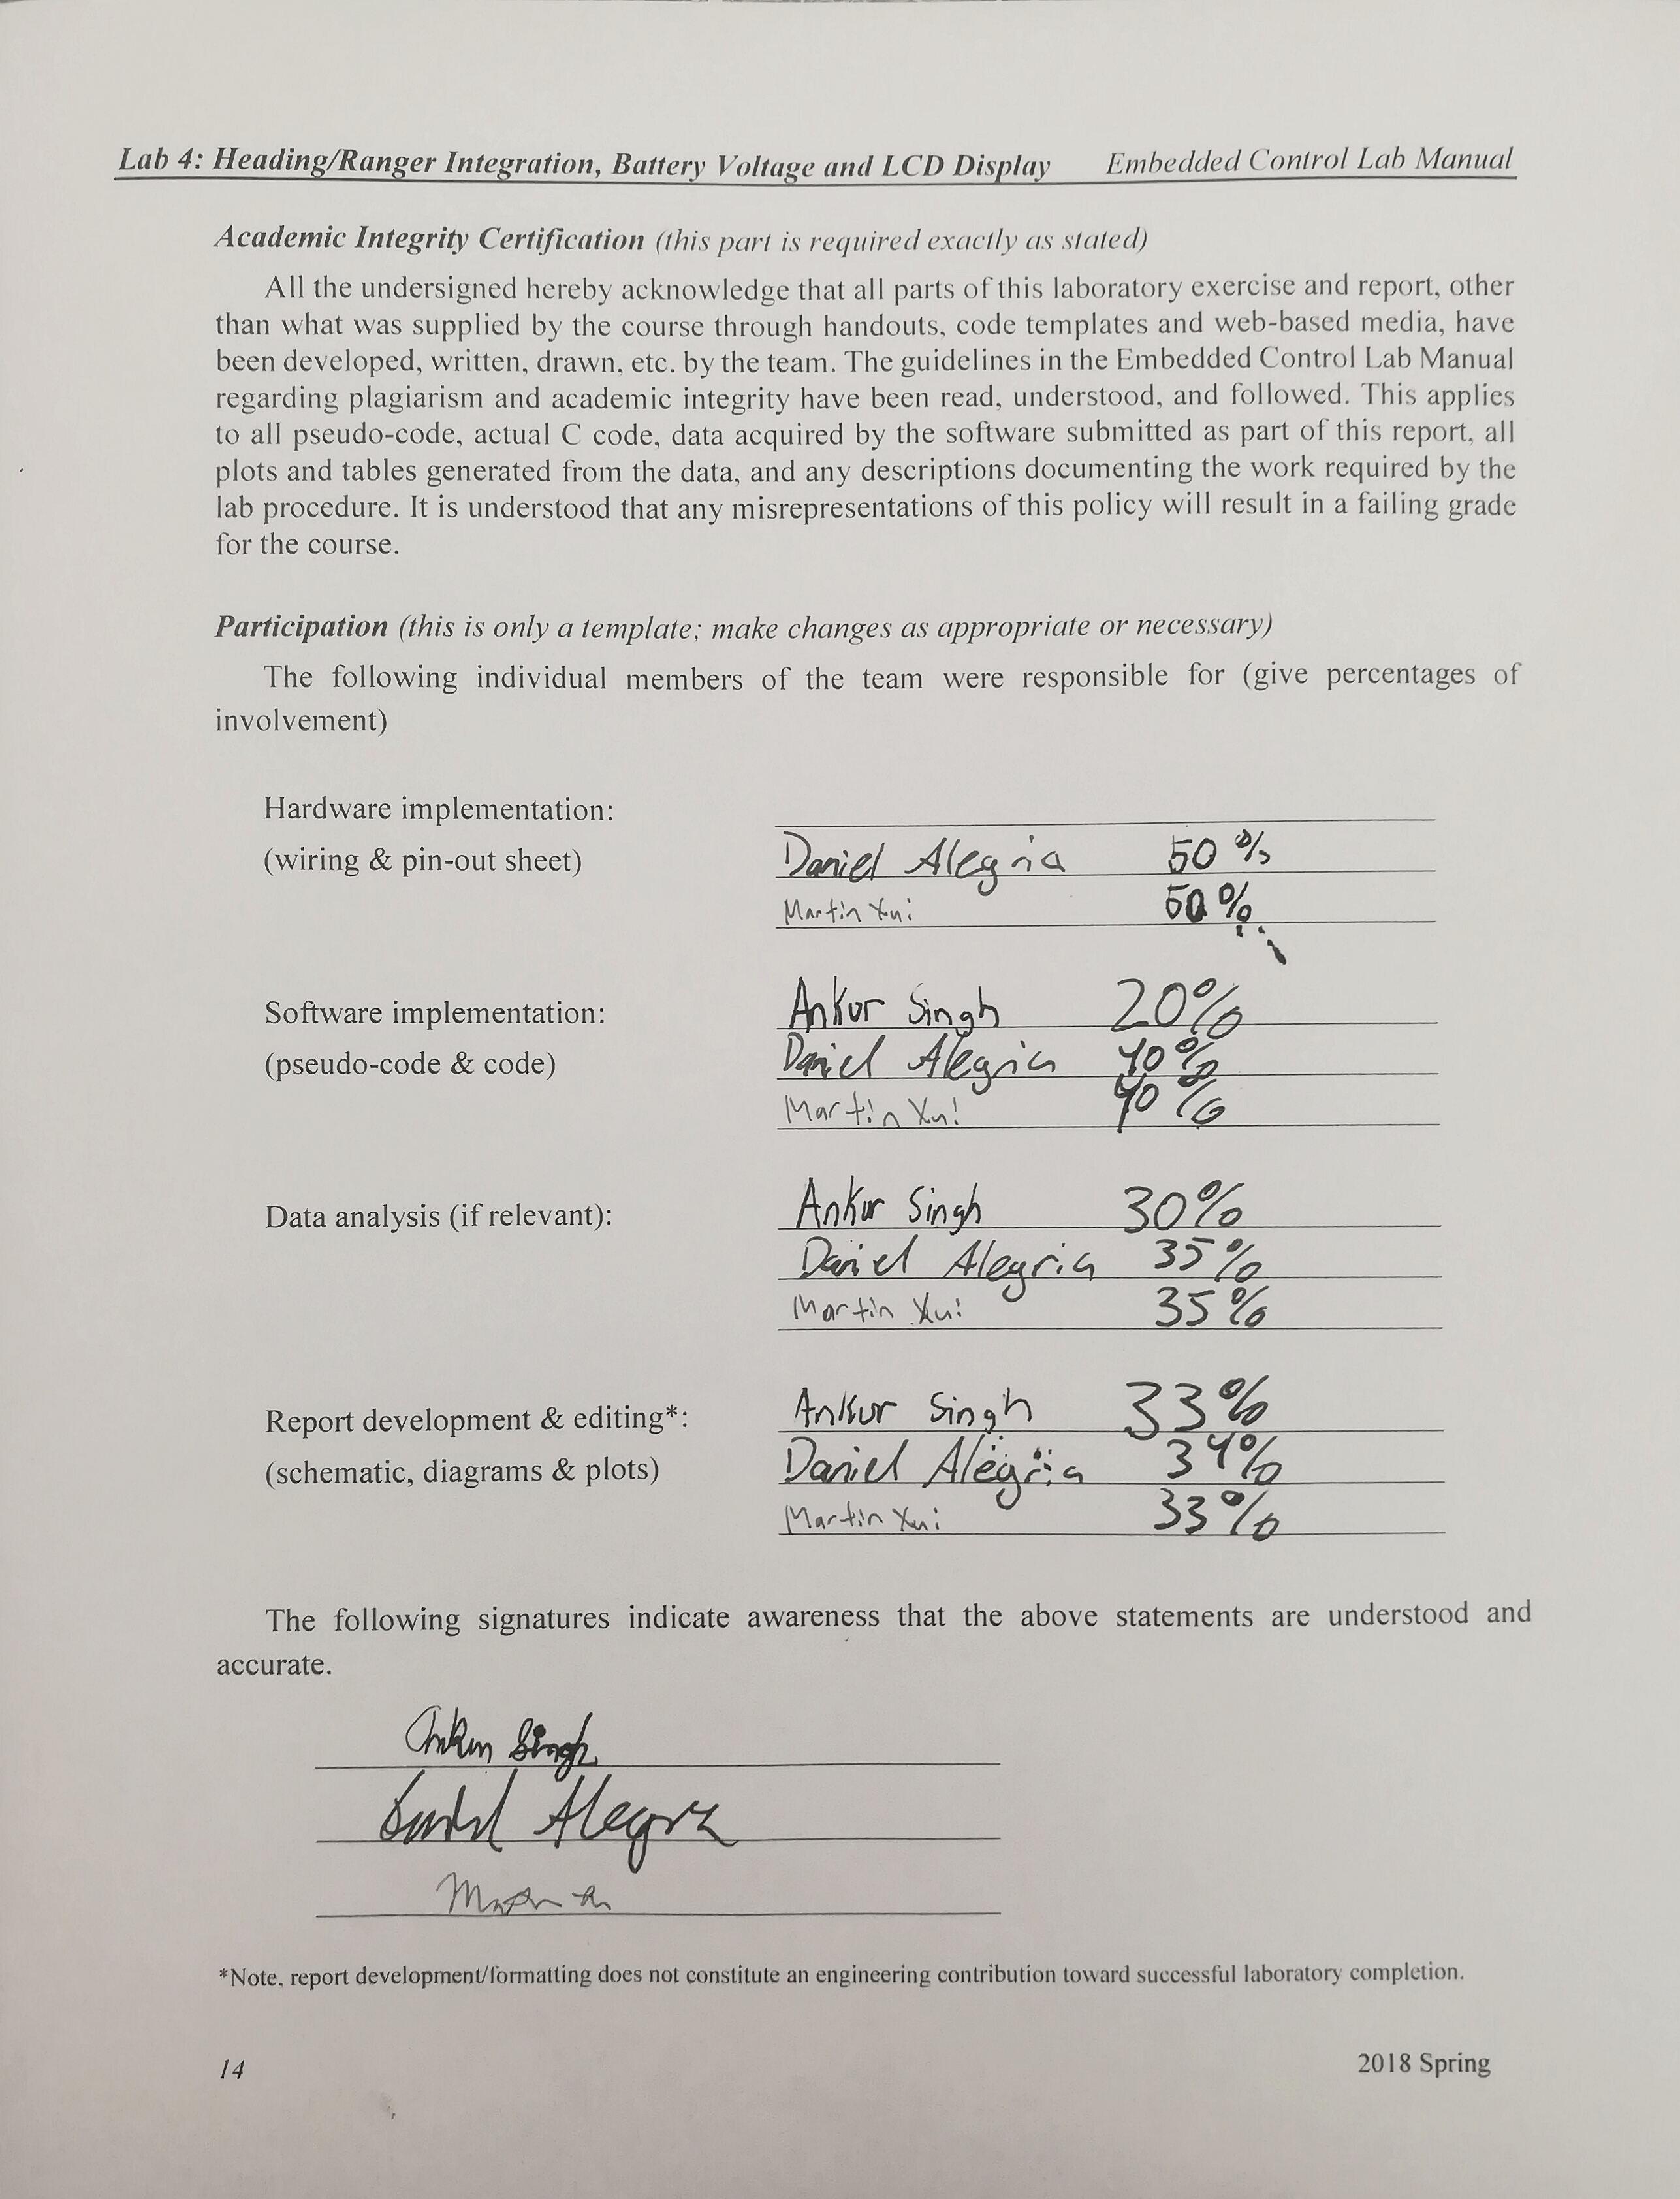 Lab 4: Heading/Ranger Integration, Battery Voltage and LCD Display Embedded Control Lab Manual
Academic Integrity Certification (this part is required exactly as stated)
All the undersigned hereby acknowledge that all parts of this laboratory exercise and report, other
than what was supplied by the course through handouts, code templates and web-based media, have
been developed, written, drawn, etc. by the team. The guidelines in the Embedded Control Lab Manual
regarding plagiarism and academic integrity have been read, understood, and followed. This applies
to all pseudo-code, actual C code, data acquired by the software submitted as part of this report, all
plots and tables generated from the data, and any descriptions documenting the work required by the
lab procedure. It is understood that any misrepresentations of this policy will result in a failing grade
for the course.
Participation (this is only a template; make changes as appropriate or necessary)
The following individual members of the team were responsible for (give percentages of
involvement)
Hardware implementation:
(wiring & pin-out sheet) Daniel Alegria 50%
Martin Xui 50%
Software implementation: Ankur Singh 20%
(pseudo-code & code) Daniel Alegria 40%
Martin Xui 40%
Data analysis (if relevant): Ankur Singh 30%
Daniel Alegria 35%
Martin Xui 35%
Report development & editing*: Ankur Singh 33%
(schematic, diagrams & plots) Daniel Alegria 34%
Martin Xui 33%
The following signatures indicate awareness that the above statements are understood and
accurate.
Ankur Singh
Daniel Alegria
*Note, report development/formatting does not constitute an engineering contribution toward successful laboratory completion.
14 2018 Spring